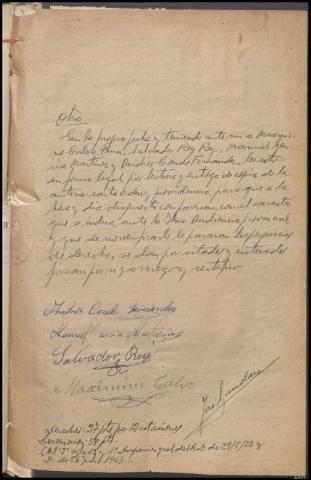 Otra
En la propia fecha y teniendo ante mi a Maximi-
no Calvo Pena, Salvador Rey Rey, Manuel Gar-
cia Martinez y Andres Conde Fernandez, les cité
en forma legal por lectura y entrega de copia de la
anterior carta orden y providencia para que a la
hora y dia dispuesto comparezcan, con el caracter
que se indica, ante la Ilma Audiencia provincial
y que de no verificarlo le pararan los perjuicios
de derecho, se dan por citados y enterados
firman para y certifico
Andres Conde Fernandez
Manuel Garcia Martinez
Salvador Rey
Maximino Calvo
José
Derechos: 27 pts por 12 citaciones
pts.
1ª disposicion gral del R.D. de 29/5/22 y
D. de 26 1943